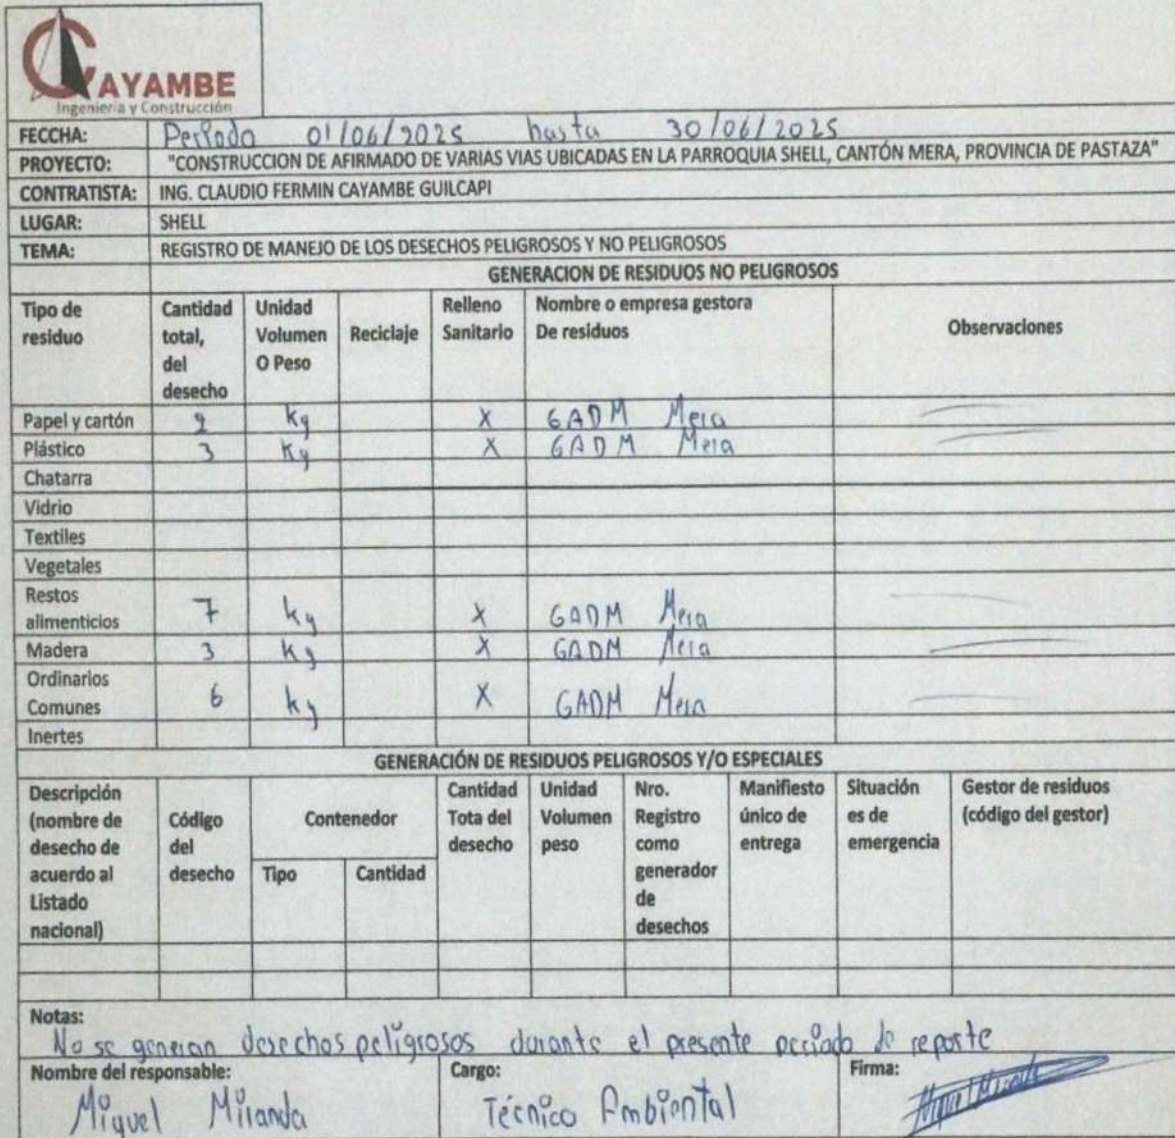 CAYAMBE
Ingeniería y Construcción
FECCHA: Periodo 01/06/2025 hasta 30/06/2025
PROYECTO: "CONSTRUCCION DE AFIRMADO DE VARIAS VIAS UBICADAS EN LA PARROQUIA SHELL, CANTÓN MERA, PROVINCIA DE PASTAZA"
CONTRATISTA: ING. CLAUDIO FERMIN CAYAMBE GUILCAPI
LUGAR: SHELL
TEMA: REGISTRO DE MANEJO DE LOS DESECHOS PELIGROSOS Y NO PELIGROSOS
GENERACION DE RESIDUOS NO PELIGROSOS
Tipo de residuo Cantidad total, del desecho Unidad Volumen O Peso Reciclaje Relleno Sanitario Nombre o empresa gestora De residuos Observaciones
Papel y cartón Kg X GADM Mera
Plástico 3 Kg X GADM Mera
Chatarra
Vidrio
Textiles
Vegetales
Restos alimenticios 7 kg X GADM Mera
Madera 3 kg X GADM Mera
Ordinarios Comunes 6 kg X GADM Mera
Inertes
GENERACIÓN DE RESIDUOS PELIGROSOS Y/O ESPECIALES
Descripción (nombre de desecho de acuerdo al Listado nacional) Código del desecho Contenedor Tipo Cantidad Cantidad Tota del desecho Unidad Volumen peso Nro. Registro como generador de desechos Manifiesto único de entrega Situación es de emergencia Gestor de residuos (código del gestor)
Notas:
No se generan desechos peligrosos durante el presente periodo de reporte
Nombre del responsable: Cargo: Firma:
Miguel Miranda Técnico Ambiental Miguel Miranda